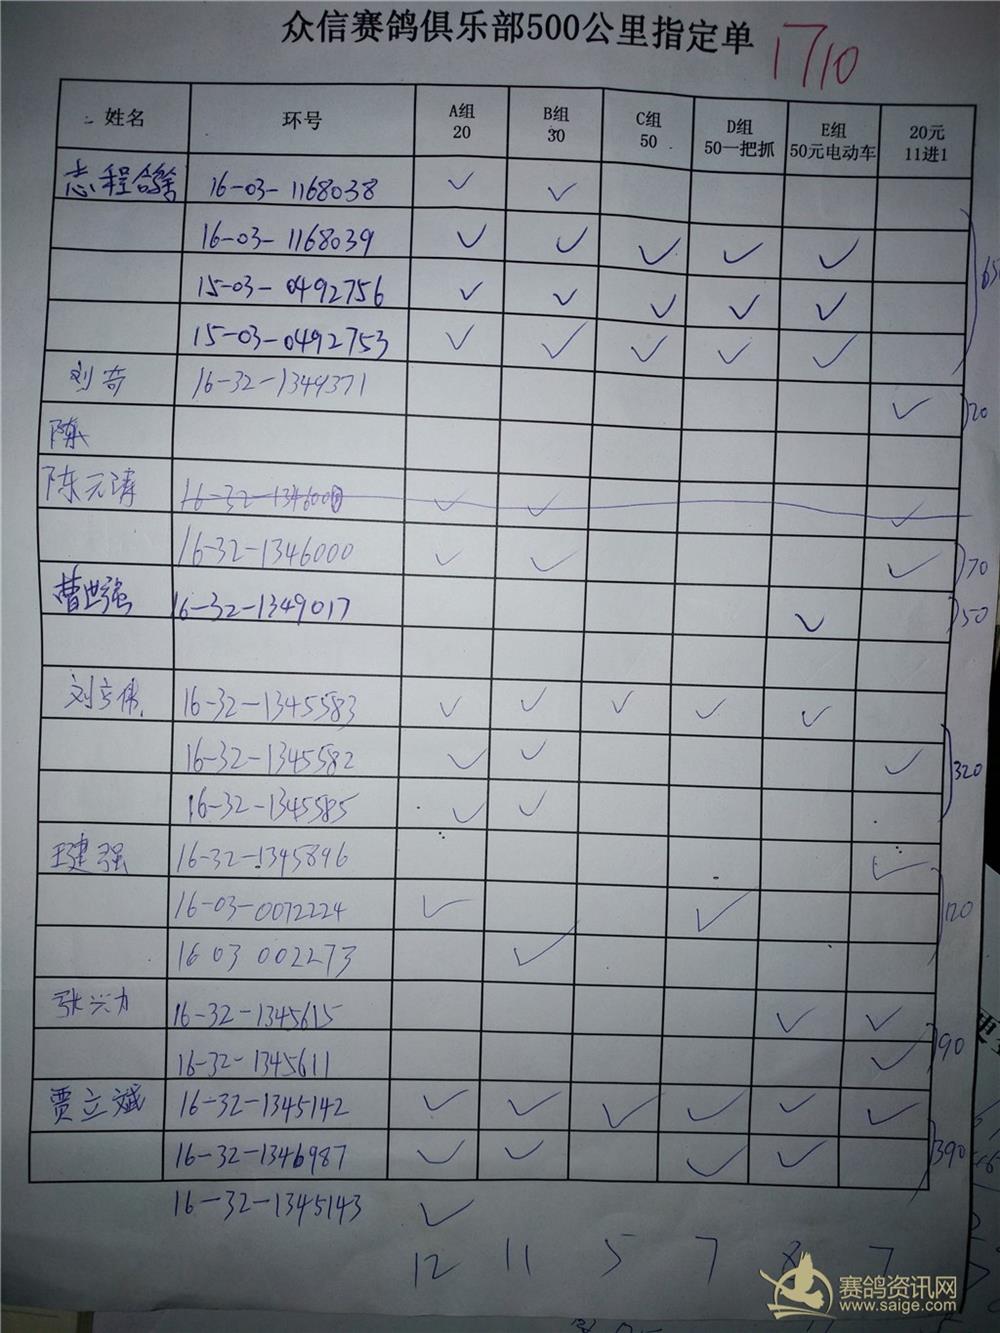 众信赛鸽俱乐部500公里指定单 1710
姓名 环号 A组 20 B组 30 C组 50 D组 50一把抓 E组 50元电动车 20元 11进1
志程鸽舍 16-03-1168038 ✓ ✓
16-03-1168039 ✓ ✓ ✓ ✓ ✓
15-03-0492756 ✓ ✓ ✓ ✓ ✓
15-03-0492753 ✓ ✓ ✓ ✓ ✓
刘奇 16-32-1349371 ✓ 20
陈
陈元涛 16-32-1346000 ✓ ✓ ✓
16-32-1346000 ✓ ✓ ✓ 70
曹世强 16-32-1349017 ✓ 50
刘立伟 16-32-1345583 ✓ ✓ ✓ ✓ ✓
16-32-1345582 ✓ ✓ ✓ 320
16-32-1345585 ✓ ✓
王建强 16-32-1345896 ✓
16-03-0072224 ✓ ✓ 120
16 03 002273 ✓
张兴力 16-32-1345615 ✓ ✓
16-32-1345611 ✓ 90
贾立斌 16-32-1345142 ✓ ✓ ✓ ✓ ✓ ✓
16-32-1346987 ✓ ✓ ✓ ✓ 390
16-32-1345143 ✓
12 11 5 7 8 7
赛鸽资讯网
www.saige.com